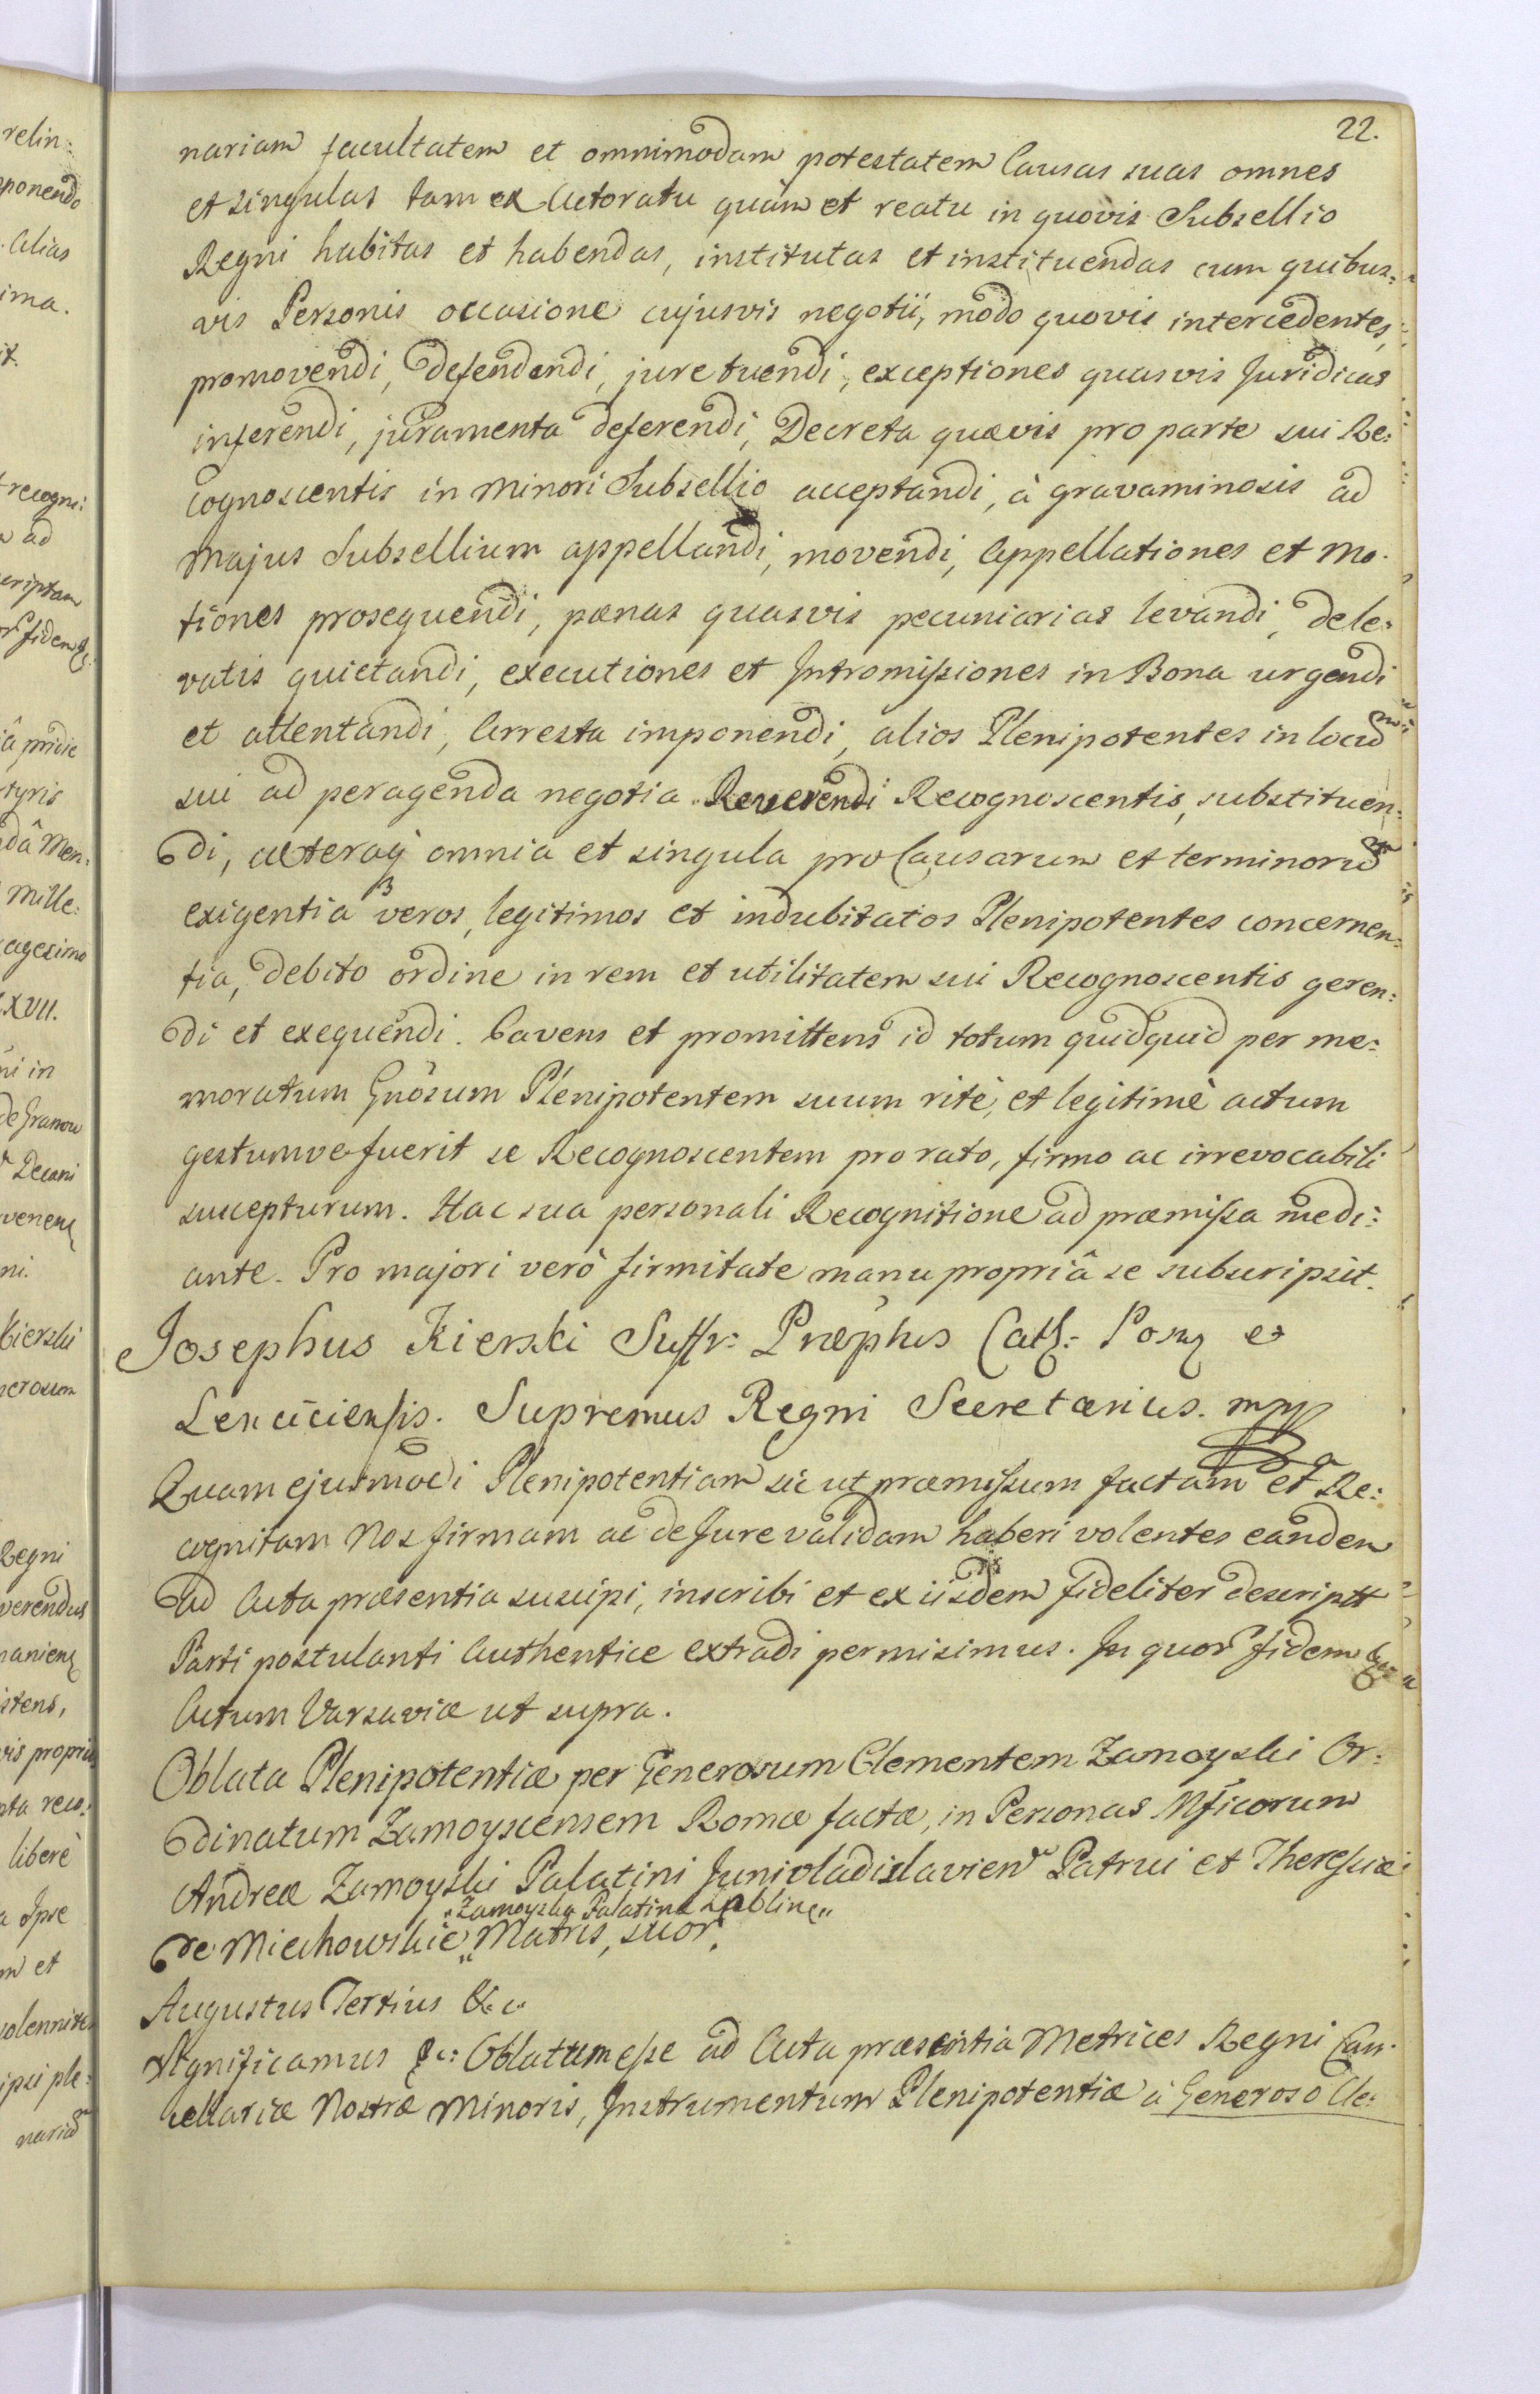 22.
nariam facultatem et omnimodam potestatem Causas suas omnes
et singulas tam ex Actoratu quàm et reatu in quovis Subsellio
Regni habitas et habendas, institutas et instituendas cum quibus-
vis Personis occasione cujusvis negotii, modo quovis intercedentes,
promovendi, defendendi, jure tuendi, exceptiones quasvis Juridicas
inferendi, juramenta deferendi, Decreta quævis pro parte sui Re:
cognoscentis in Minori Subsellio acceptandi, à gravaminosis ad
Majus Subsellium appellandi, movendi, Appellationes et Mo-
tiones prosequendi, pænas quasvis pecuniarias levandi, de le:
vatis quietandi, executiones et Intromissiones in Bona urgendi
et attentandi, Arresta imponendi, alios Plenipotentes in locum
sui ad peragenda negotia Reverendi Recognoscentis, substituen:
di, cæteraq omnia et singula pro Causarum et terminorum
exigentia veros, legitimos et indubitatos Plenipotentes concernen:
tia, debito ordine in rem et utilitatem sui Recognoscentis geren:
di et exequendi. Cavens et promittens id totum quidquid per me:
moratum Gnosum Plenipotentem suum ritè, et legitimè actum
gestumve fuerit se Recognoscentem pro rato, firmo ac irrevocabili
suscepturum. Hac sua personali Recognitione ad præmissa medi:
ante. Pro majori verò firmitate manu propriâ se subscripsit.
Josephus Kierski Suffr: Præphus Cath: Posn et
Lenciciensis. Supremus Regni Secretarius. mpp
Quam ejusmodi Plenipotentiam sic ut præmissum factam et Re:
cognitam Nos firmam ac de Jure validam haberi volentes eandem
ad Acta præsentia suscipi, inscribi et ex iisdem fideliter descriptt
Parti postulanti Authentice extradi permisimus. In quor fidem
Actum Varsaviæ ut supra.
Oblata Plenipotentiæ per Generosum Clementem Zamoyski Or:
dinatum Zamoyscensem Romæ factæ, in Personas Mficorum
Andreæ Zamoyski Palatini Junivladislavien Patrui et Theresiæ
„Zamoyska Palatina Lublin„
de Miechowskie „Matris, suor.
Augustus Tertius &c.
Significamus &c: Oblatum esse ad Acta præsentia Metrices Regni Can-
cellariæ Nostræ Minoris, Instrumentum Plenipotentiæ à Generoso Cle: